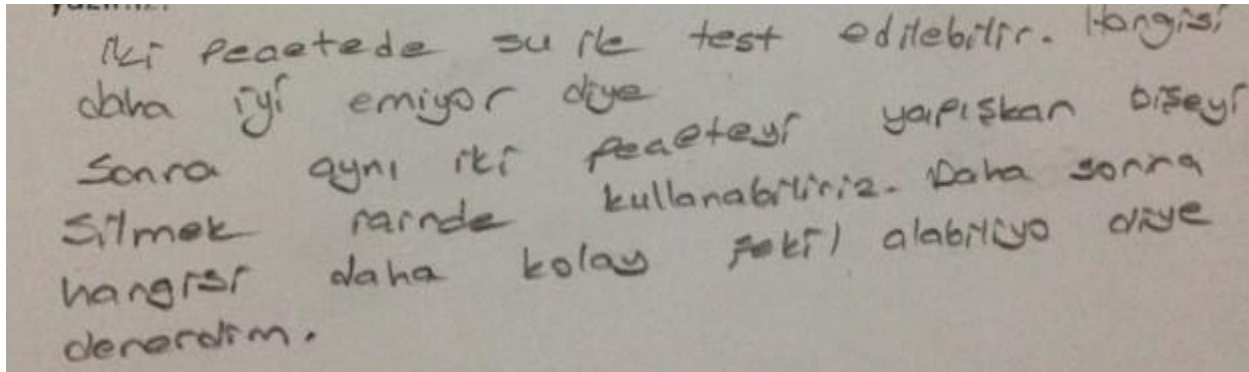 iki peçetede su ile test edilebilir. Hangisi
daha iyi emiyor diye
Sonra aynı iki peçeteyi yapışkan bişeyi
Silmek için de kullanabiliriz. Daha sonra
hangisi daha kolay şekil alabiliyo diye
denerdim.